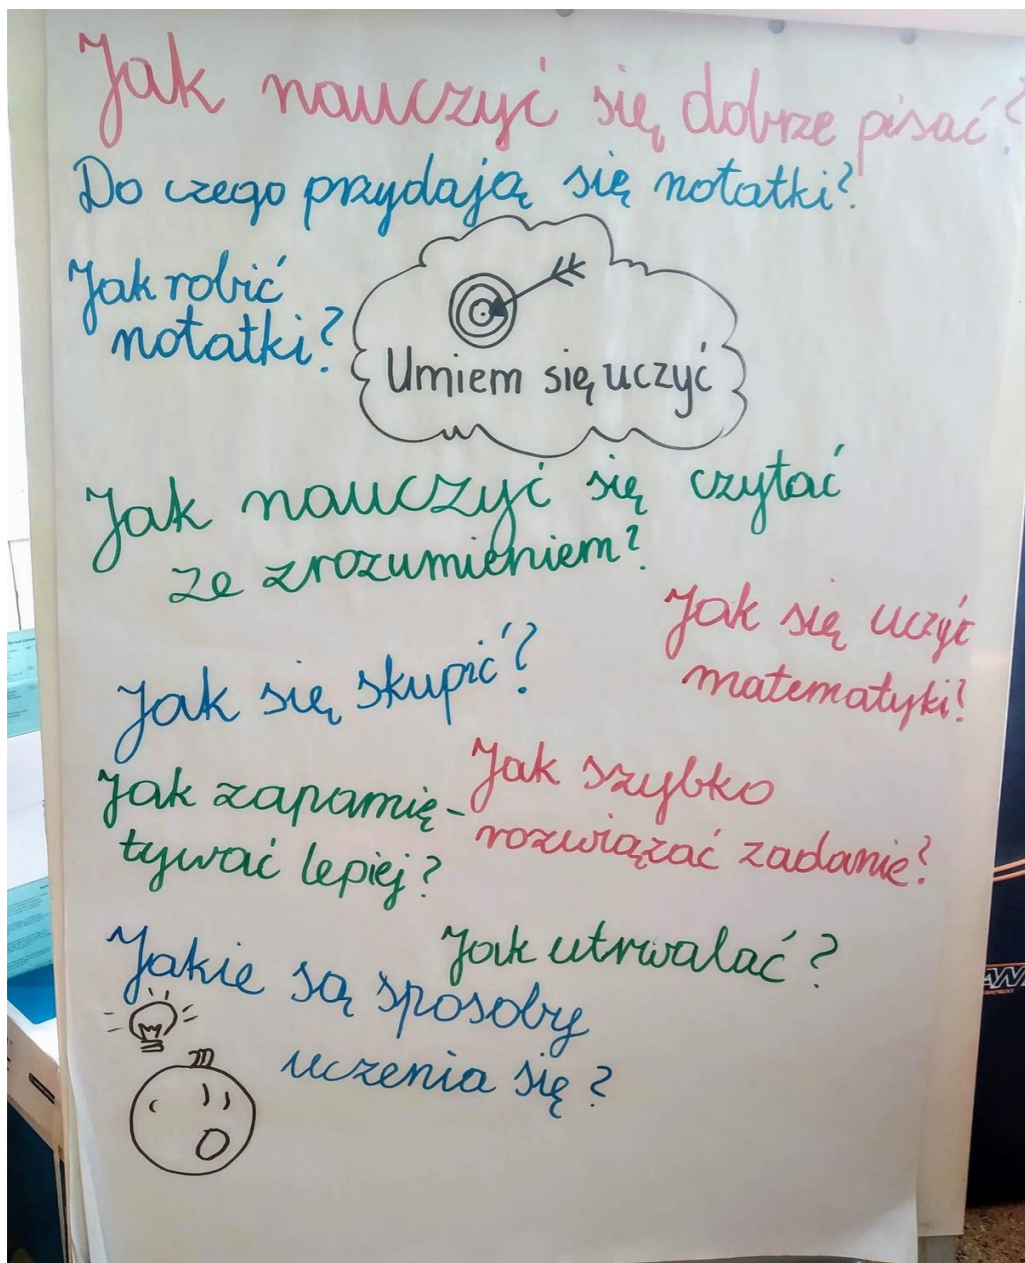 Jak nauczyć się dobrze pisać?
Do czego przydają się notatki?
Jak robić
notatki?
Umiem się uczyć
Jak nauczyć się czytać
ze zrozumieniem?
Jak się uczyć
matematyki?
Jak się skupić?
Jak zapamię-
tywać lepiej?
Jak szybko
rozwiązać zadanie?
Jak utrwalać?
Jakie są sposoby
uczenia się?